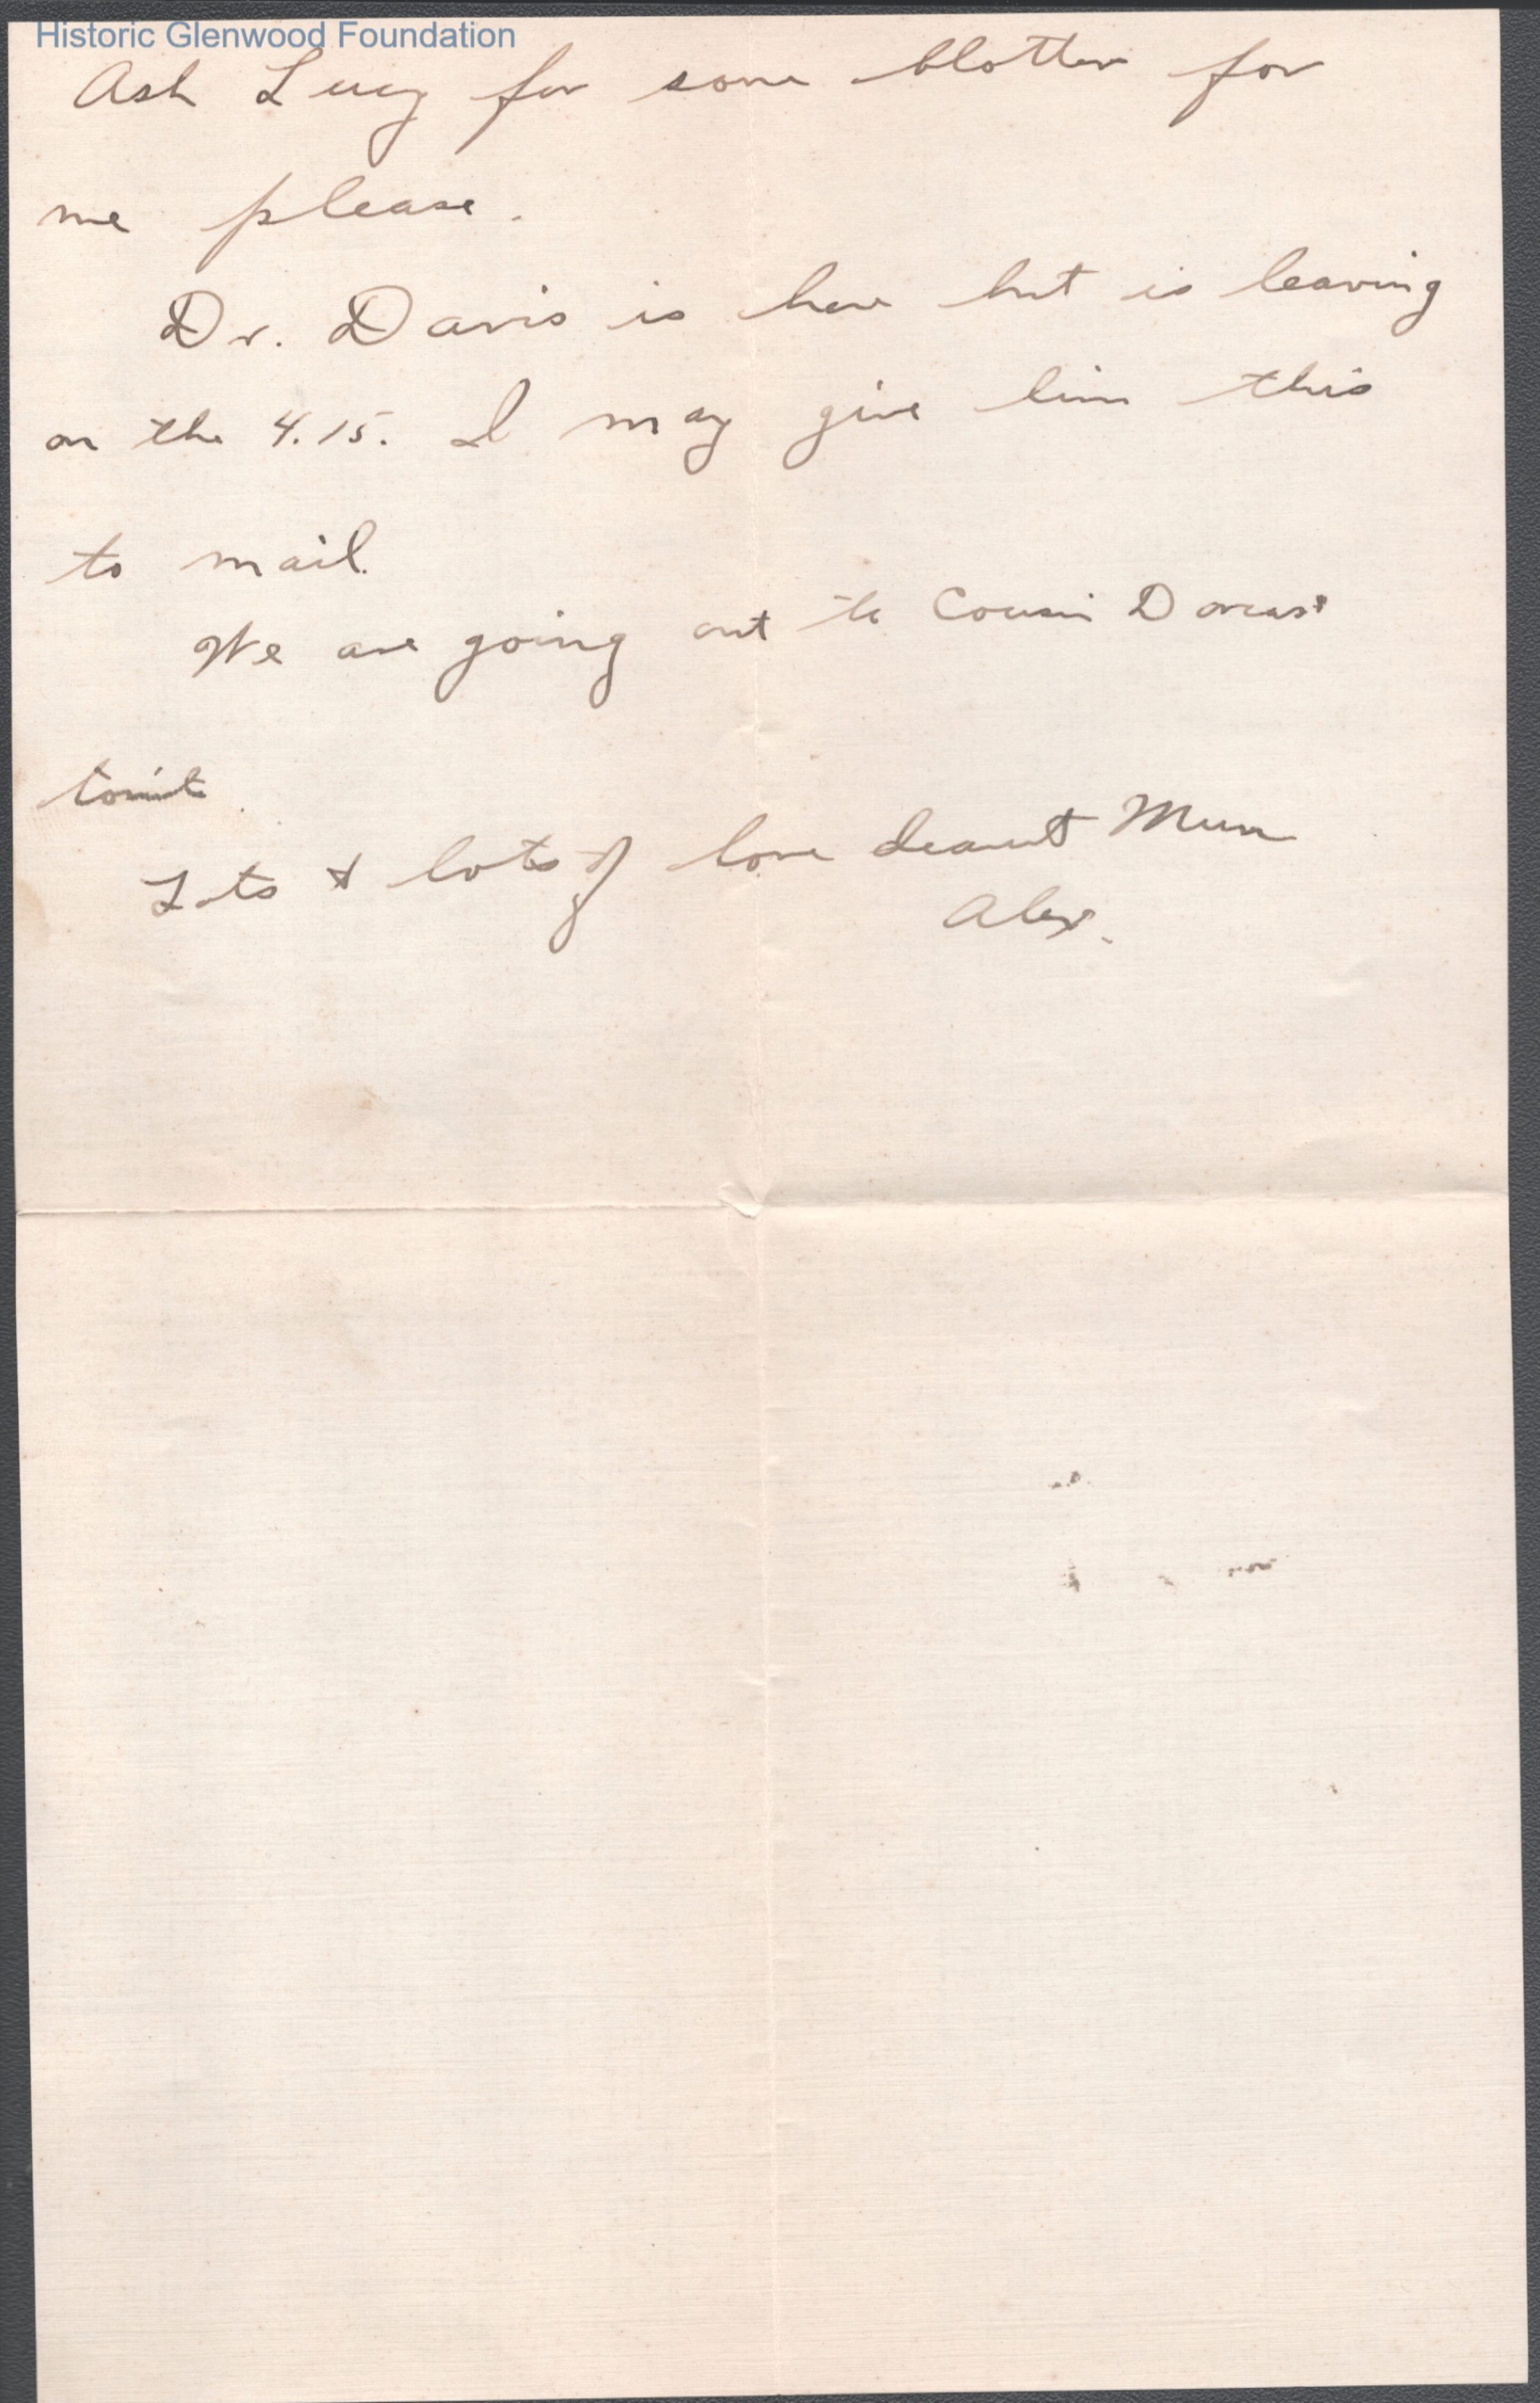 Historic Glenwood Foundation
Ask Lucy for some blotters for
me please.
Dr. Davis is here but is leaving
on the 4.15. I may give him this
to mail.
We are going out to Cousin Dorcas'
tonit.
Lots & lots of love dearest Mum
Alex.